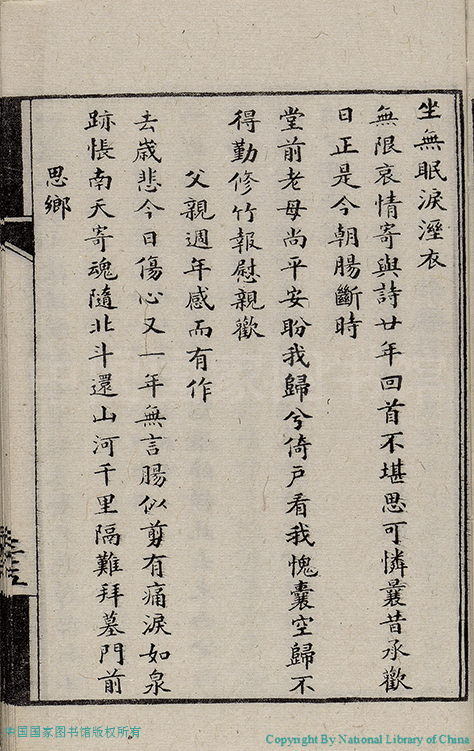 坐無眠淚溼衣
無限哀情寄與詩廿年回首不堪思可憐曩昔承歡
日正是今朝腸斷時
堂前老母尚平安盼我歸兮倚戶看我愧囊空歸不
得勤修竹報慰親歡
父親週年感而有作
去歲悲今日傷心又一年無言腸似剪有痛淚如泉
跡悵南天寄魂隨北斗還山河千里隔難拜墓門前
思鄉
中国国家图书馆版权所有
Copyright By National Library of China